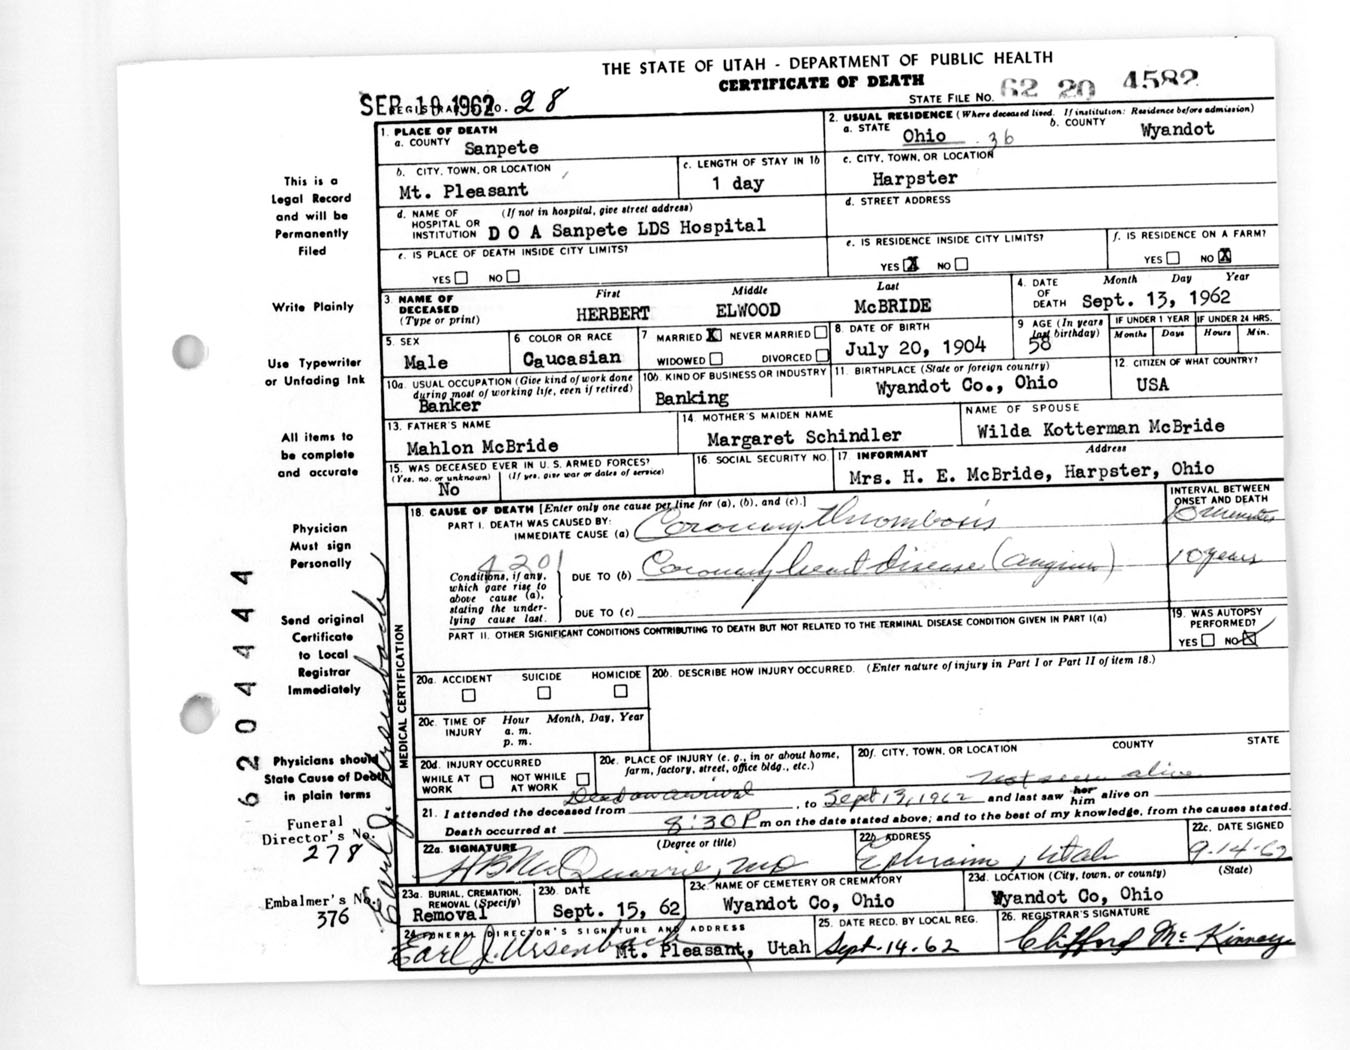 THE STATE OF UTAH - DEPARTMENT OF PUBLIC HEALTH
CERTIFICATE OF DEATH
SEP 10 1962
REGISTRAR'S NO. 28
STATE FILE NO. 62 20 4582
1. PLACE OF DEATH
a. COUNTY Sanpete
2. USUAL RESIDENCE (Where deceased lived. If institution: Residence before admission)
a. STATE Ohio 36 b. COUNTY Wyandot
b. CITY, TOWN, OR LOCATION
Mt. Pleasant
c. LENGTH OF STAY IN 1b
1 day
c. CITY, TOWN, OR LOCATION
Harpster
d. NAME OF HOSPITAL OR INSTITUTION (If not in hospital, give street address)
D O A Sanpete LDS Hospital
d. STREET ADDRESS
e. IS PLACE OF DEATH INSIDE CITY LIMITS?
YES NO
e. IS RESIDENCE INSIDE CITY LIMITS?
YES X NO
f. IS RESIDENCE ON A FARM?
YES NO X
3. NAME OF DECEASED (Type or print)
First Middle Last
HERBERT ELWOOD McBRIDE
4. DATE OF DEATH Month Day Year
Sept. 13, 1962
5. SEX
Male
6 COLOR OR RACE
Caucasian
7 MARRIED X NEVER MARRIED
WIDOWED DIVORCED
8. DATE OF BIRTH
July 20, 1904
9 AGE (In years last birthday)
58
IF UNDER 1 YEAR IF UNDER 24 HRS.
Months Days Hours Min.
10a. USUAL OCCUPATION (Give kind of work done during most of working life, even if retired)
Banker
10b. KIND OF BUSINESS OR INDUSTRY
Banking
11. BIRTHPLACE (State or foreign country)
Wyandot Co., Ohio
12. CITIZEN OF WHAT COUNTRY?
USA
13. FATHER'S NAME
Mahlon McBride
14. MOTHER'S MAIDEN NAME
Margaret Schindler
NAME OF SPOUSE
Wilda Kotterman McBride
15. WAS DECEASED EVER IN U. S. ARMED FORCES?
(Yes, no, or unknown) (If yes, give war or dates of service)
No
16. SOCIAL SECURITY NO.
17. INFORMANT Address
Mrs. H. E. McBride, Harpster, Ohio
18. CAUSE OF DEATH [Enter only one cause per line for (a), (b), and (c).]
INTERVAL BETWEEN ONSET AND DEATH
PART I. DEATH WAS CAUSED BY:
IMMEDIATE CAUSE (a) Coronary thrombosis
minutes
4201
Conditions, if any, which gave rise to above cause (a), stating the underlying cause last.
DUE TO (b) Coronary heart disease (angina)
10 years
DUE TO (c)
PART II. OTHER SIGNIFICANT CONDITIONS CONTRIBUTING TO DEATH BUT NOT RELATED TO THE TERMINAL DISEASE CONDITION GIVEN IN PART I(a)
19. WAS AUTOPSY PERFORMED?
YES NO X
20a. ACCIDENT SUICIDE HOMICIDE
20b. DESCRIBE HOW INJURY OCCURRED. (Enter nature of injury in Part I or Part II of item 18.)
20c. TIME OF INJURY Hour Month, Day, Year
a. m.
p. m.
20d. INJURY OCCURRED
WHILE AT WORK NOT WHILE AT WORK
20e. PLACE OF INJURY (e. g., in or about home, farm, factory, street, office bldg., etc.)
20f. CITY, TOWN, OR LOCATION COUNTY STATE
21. I attended the deceased from Dead on arrival, to Sept 13, 1962 and last saw her him alive on not seen alive
Death occurred at 8:30 P m on the date stated above; and to the best of my knowledge, from the causes stated.
22a. SIGNATURE (Degree or title)
H B McQuarrie, MD
22b. ADDRESS
Ephraim, Utah
22c. DATE SIGNED
9-14-62
23a. BURIAL, CREMATION, REMOVAL (Specify)
Removal
23b. DATE
Sept. 15, 62
23c. NAME OF CEMETERY OR CREMATORY
Wyandot Co, Ohio
23d. LOCATION (City, town, or county) (State)
Wyandot Co, Ohio
24. FUNERAL DIRECTOR'S SIGNATURE AND ADDRESS
Earl J. Ursenbach Mt. Pleasant, Utah
25. DATE RECD. BY LOCAL REG.
Sept-14-62
26. REGISTRAR'S SIGNATURE
Clifford McKinney
MEDICAL CERTIFICATION
This is a
Legal Record
and will be
Permanently
Filed
Write Plainly
Use Typewriter
or Unfading Ink
All items to
be complete
and accurate
Physician
Must sign
Personally
Send original
Certificate
to Local
Registrar
Immediately
Physicians should
State Cause of Death
in plain terms
Funeral
Director's No.
278
Embalmer's No.
376
Earl J. Ursenbach
6 2 0 4 4 4 4